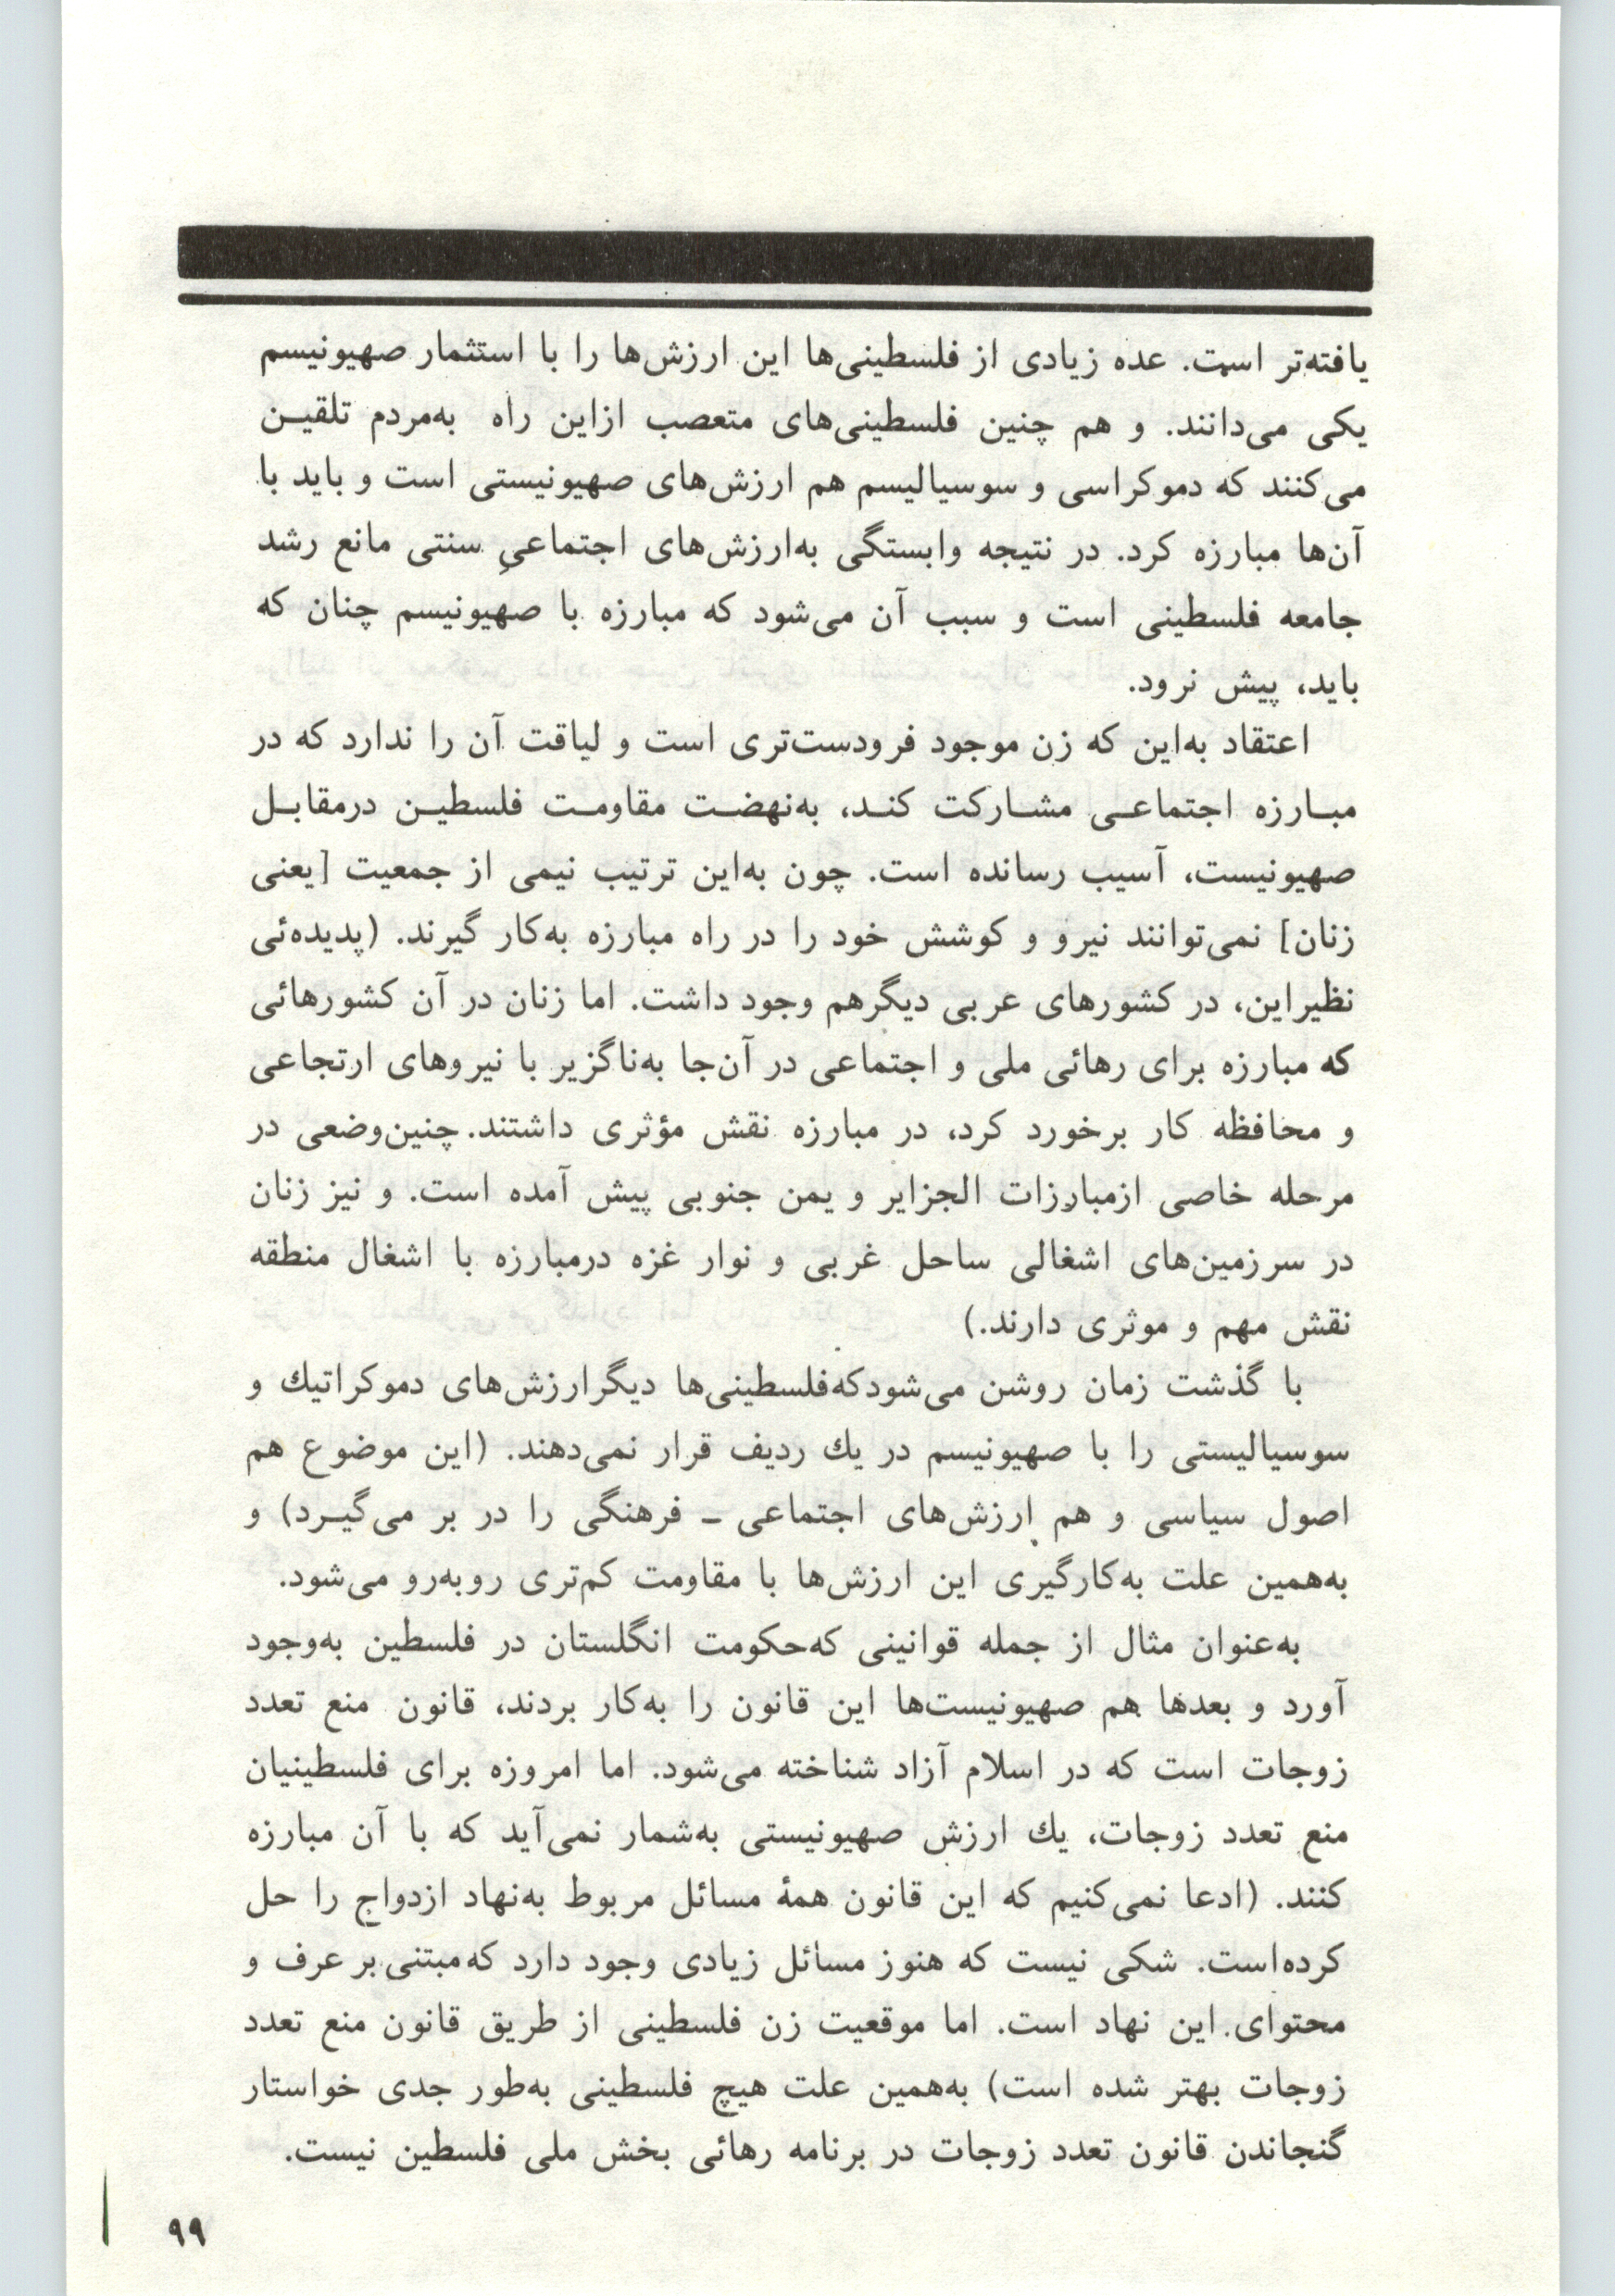 یافته‌تر است. عده زیادی از فلسطینی‌ها این ارزش‌ها را با استثمار صهیونیسم
یکی می‌دانند. و هم چنین فلسطینی‌های متعصب ازاین راه به‌مردم تلقیـن
می‌کنند که دموکراسی و سوسیالیسم هم ارزش‌های صهیونیستی است و باید با
آن‌ها مبارزه کرد. در نتیجه وابستگی به‌ارزش‌های اجتماعیِ سنتی مانع رشد
جامعه فلسطینی است و سبب آن می‌شود که مبارزه با صهیونیسم چنان که
باید، پیش نرود.
اعتقاد به‌این که زن موجود فرودست‌تری است و لیاقت آن را ندارد که در
مبـارزه اجتماعـی مشـارکت کنـد، به‌نهضـت مقاومـت فلسطیـن درمقابـل
صهیونیست، آسیب رسانده است. چون به‌این ترتیب نیمی از جمعیت [یعنی
زنان] نمی‌توانند نیرو و کوشش خود را در راه مبارزه به‌کار گیرند. (پدیده‌ئی
نظیراین، در کشورهای عربی دیگرهم وجود داشت. اما زنان در آن کشورهائی
که مبارزه برای رهائی ملی و اجتماعی در آن‌جا به‌ناگزیر با نیروهای ارتجاعی
و محافظه کار برخورد کرد، در مبارزه نقش مؤثری داشتند. چنین‌وضعی در
مرحله خاصی ازمبارزات الجزایر و یمن جنوبی پیش آمده است. و نیز زنان
در سرزمین‌های اشغالی ساحل غربی و نوار غزه درمبارزه با اشغال منطقه
نقش مهم و موثری دارند.)
با گذشت زمان روشن می‌شودکه‌فلسطینی‌ها دیگرارزش‌های دموکراتیك و
سوسیالیستی را با صهیونیسم در یك ردیف قرار نمی‌دهند. (این موضوع هم
اصول سیاسی و هم ارزش‌های اجتماعی ـ فرهنگی را در بر می‌گیـرد) و
به‌همین علت به‌کارگیری این ارزش‌ها با مقاومت کم‌تری روبه‌رو می‌شود.
به‌عنوان مثال از جمله قوانینی که‌حکومت انگلستان در فلسطین به‌وجود
آورد و بعدها هم صهیونیست‌ها این قانون را به‌کار بردند، قانون منع تعدد
زوجات است که در اسلام آزاد شناخته می‌شود. اما امروزه برای فلسطینیان
منع تعدد زوجات، یك ارزش صهیونیستی به‌شمار نمی‌آید که با آن مبارزه
کنند. (ادعا نمی‌کنیم که این قانون همهٔ مسائل مربوط به‌نهاد ازدواج را حل
کرده‌است. شکی نیست که هنوز مسائل زیادی وجود دارد که‌مبتنی‌بر عرف و
محتوای این نهاد است. اما موقعیت زن فلسطینی از طریق قانون منع تعدد
زوجات بهتر شده است) به‌همین علت هیچ فلسطینی به‌طور جدی خواستار
گنجاندن قانون تعدد زوجات در برنامه رهائی بخش ملی فلسطین نیست.
۹۹